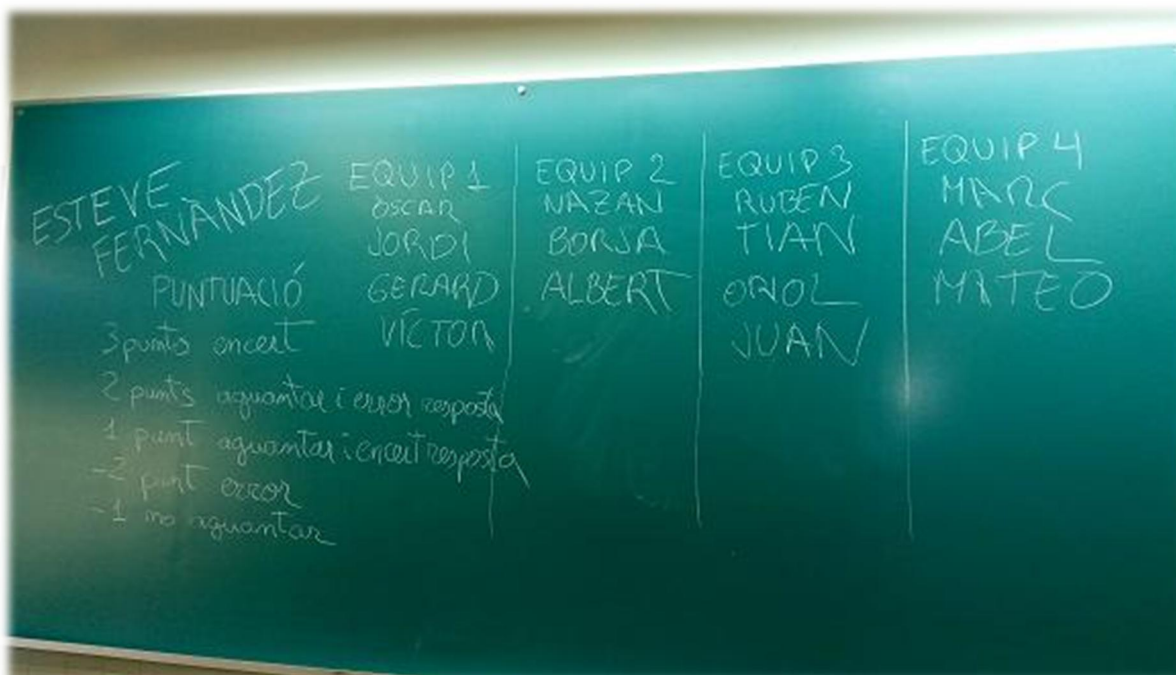 ESTEVE
FERNÀNDEZ
PUNTUACIÓ
3 punts encert
2 punts aguantar i error resposta
1 punt aguantar i encert resposta
-2 punt error
-1 no aguantar
EQUIP 1
OSCAR
JORDI
GERARD
VÍCTOR
EQUIP 2
NAZAN
BORJA
ALBERT
EQUIP 3
RUBEN
TIAN
ORIOL
JUAN
EQUIP 4
MARC
ABEL
MATEO